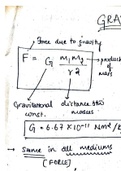 GRA
Force due to gravity
F = G m₁m₂ / r² → product of mass
Gravitational const.
distance btw masses
G = 6.67 × 10⁻¹¹ Nm²/
→ Same in all mediums
(FORCE)